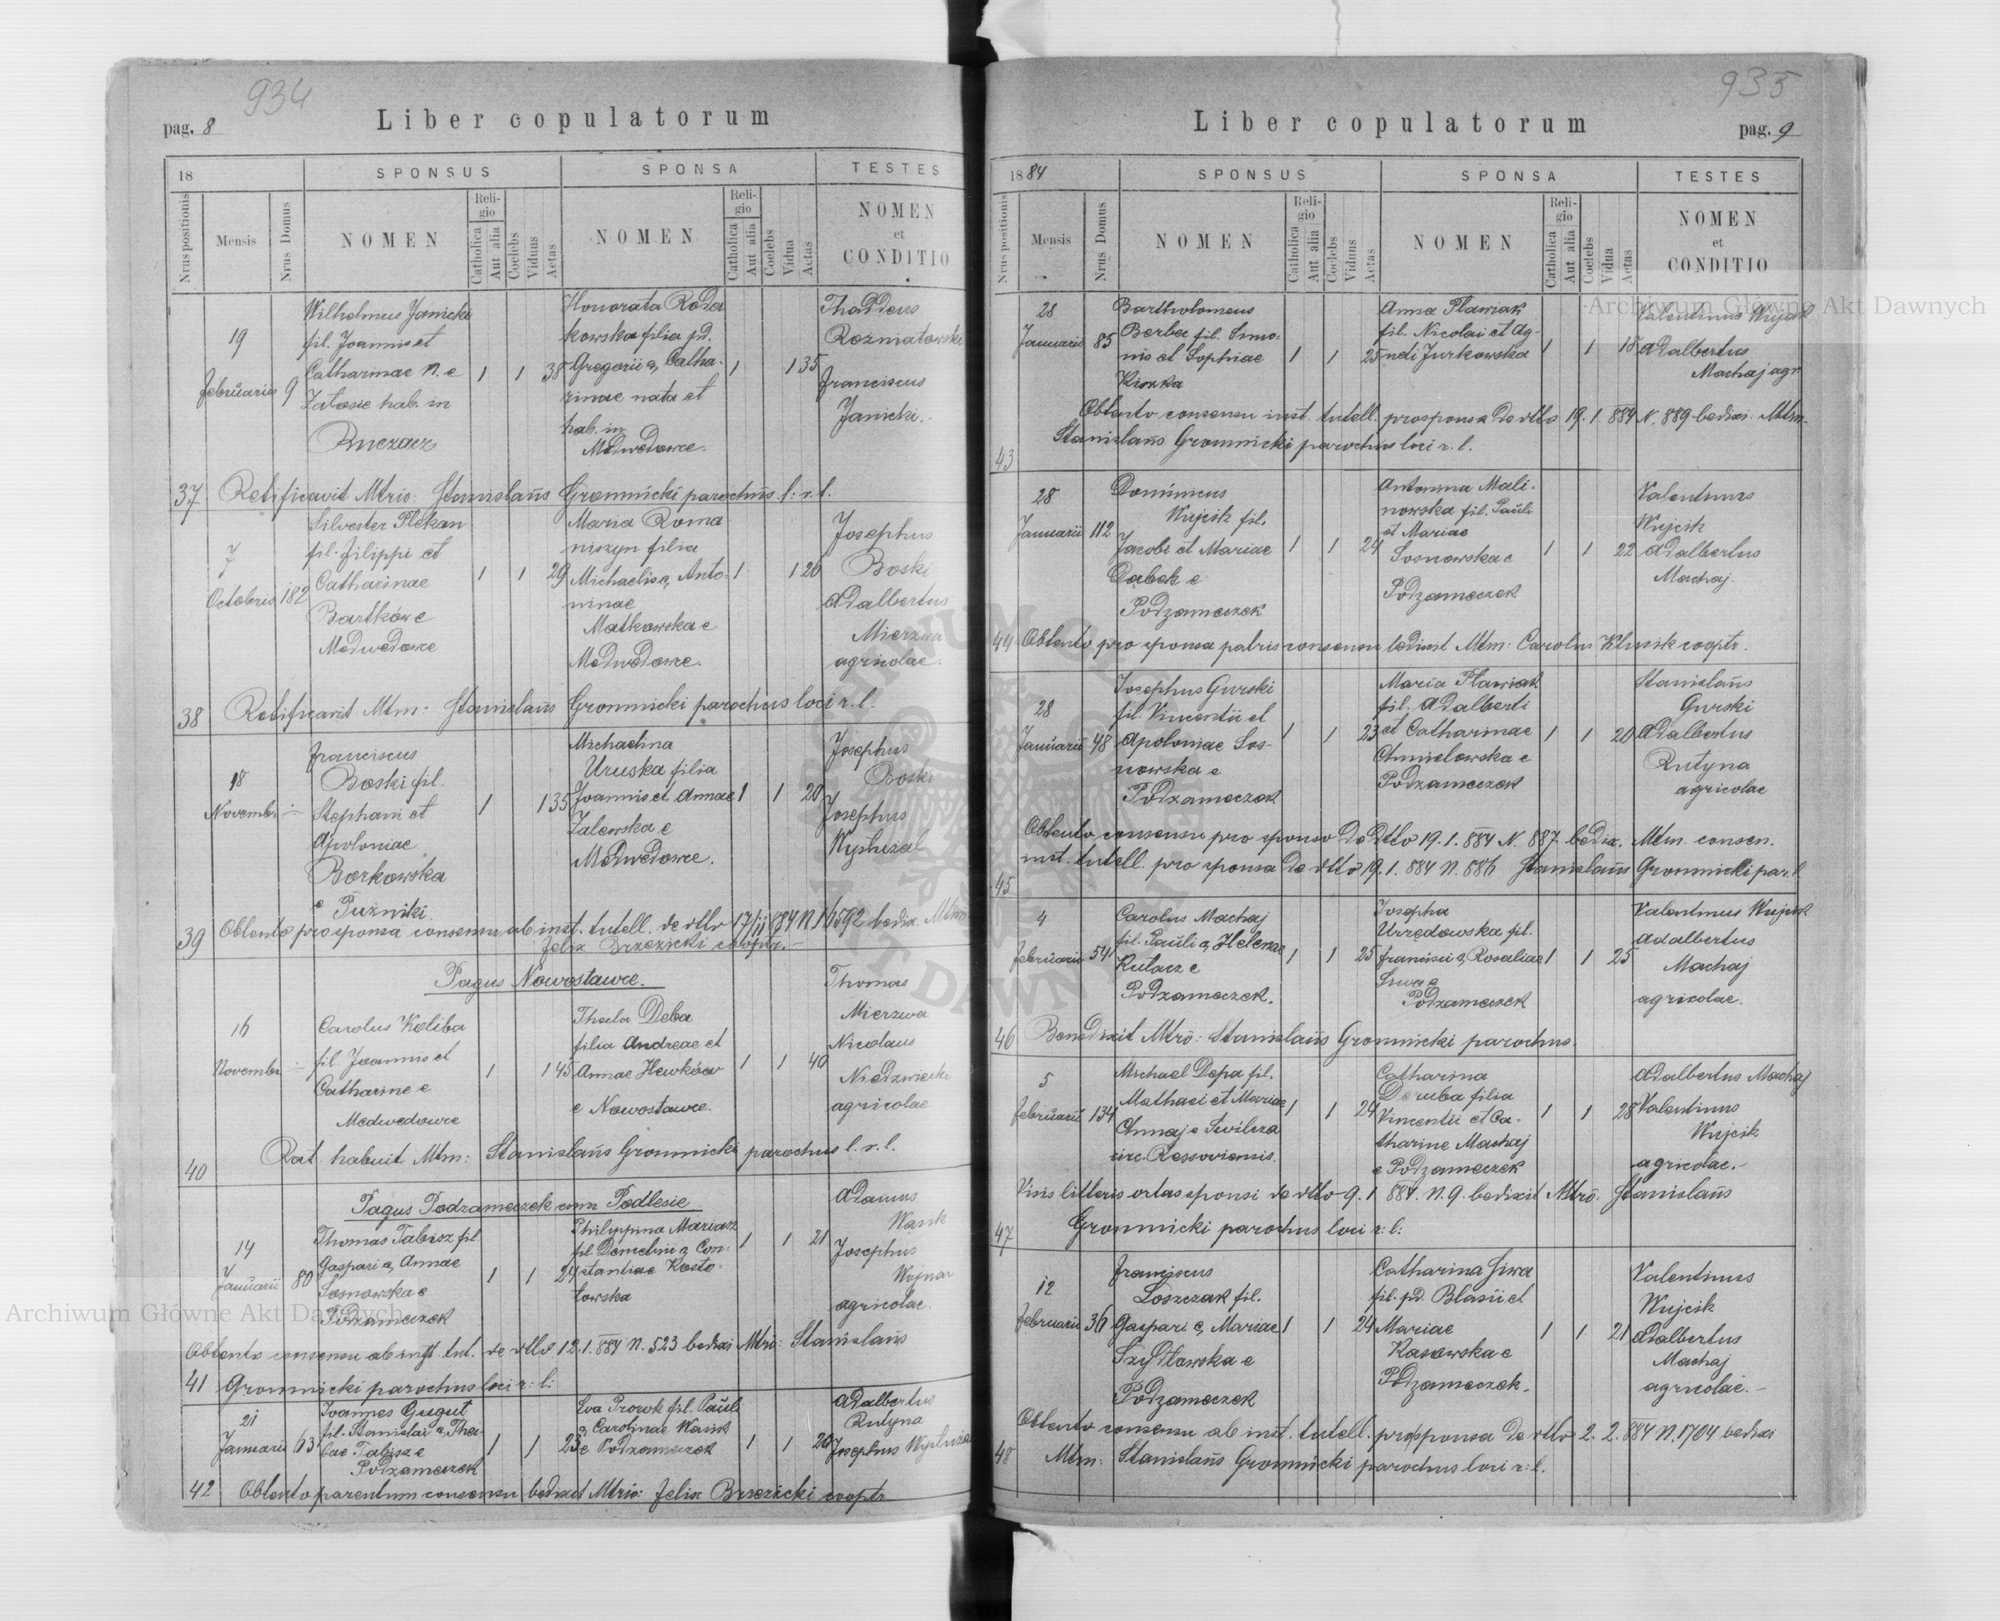 934
pag. 8
Liber copulatorum
18
SPONSUS
SPONSA
TESTES
Nrus positionis
Mensis
Nrus Domus
NOMEN
Religio
Catholica
Aut alia
Coelebs
Viduus
Aetas
NOMEN
Religio
Catholica
Aut alia
Coelebs
Vidua
Aetas
NOMEN
et
CONDITIO
19
Februarius 9
Wilhelmus Janicki
fil. Joannis et
Catharinae N. e
hab. in
1 1 38
Honorata Roda
kowska filia pd.
Gregorii & Catha-
rinae nata et
hab. in
Medwedowce.
1 1 35
Thaddeus
Rozmiatowski
Franciscus
Janicki.
37 Ratificavit Mtrio: Stanislaus Gromnicki parochus l: r. l.
7
Octobris 182
Silvester Plekan
fil. Filippi et
Catharinae
Bartków e
Medwedowce
1 1 29
Maria Roma
niszyn filia
Michaelis & Anto-
ninae
Matkowska e
Medwedowce.
1 1 26
Josephus
Boski
Adalbertus
Mierzwa
agricolae.
38 Ratificavit Mtm. Stanislaus Gromnicki parochus loci r. l.
18
Novembr ÷
Franciscus
Boski fil.
Stephani et
Apoloniae
Borkowska
e Puźniki.
1 1 35
Michaelina
Uruska filia
Joannis et Annae
Zalewska e
Medwedowce.
1 1 20
Josephus
Boski
Josephus
39 Obtento pro sponsa consensu ab inst. tutell. de dtto 17/11 884 N 16592 bedix. Mtm
Felix Brzezicki cooptr.
Pagus Nowostawce.
16
Novembr ÷
Carolus Koliba
fil. Joannis et
Catharine e
Medwedowce
1 1 45
Thecla Deba
filia Andreae et
Annae Hewków
e Nowostawce.
1 1 40
Thomas
Mierzwa
Nicolaus
Niedzwiecki
agricolae
40 Rat. habuit Mtm: Stanislaus Gromnicki parochus l. r. l.
Pagus Podzameczek cum Podlesie
14
Januarii 80
Thomas Tabisz fil.
Gaspari & Annae
Sosnowska e
Podzameczek
1 1 24
Philippina Mariasz
fil. Demetrii & Con-
stantiae Kosto-
towska
1 1 21
Adamus
Wasik
Josephus
Wojnar
agricolae.
Obtento consensu ab inst. tut. de dtto 12. 1. 884 N. 523 bedixi Mtrio: Stanislaus
41 Gromnicki parochus loci r: l:
21
Januarii 63
Joannes Gugut
fil. Stanislai & The-
clae Tabisz e
Podzameczek
1 1 23
Eva Prowk fil. Pauli
& Carolinae Wasik
e Podzameczek
1 1 20
Adalbertus
Rutyna
Josephus
42 Obtento parentum consensu bedixit Mtrio: Felix Brzezicki cooptr
935
Liber copulatorum
pag. 9
1884
SPONSUS
SPONSA
TESTES
Nrus positionis
Mensis
Nrus Domus
NOMEN
Religio
Catholica
Aut alia
Coelebs
Viduus
Aetas
NOMEN
Religio
Catholica
Aut alia
Coelebs
Vidua
Aetas
NOMEN
et
CONDITIO
28
Januarii 85
Bartholomeus
Berba fil. Simo-
nis et Sophiae
Kiszka
1 1 25
Anna Plawiak
fil. Nicolai et Ag-
neti Jurkowska
1 1 18
Valentinus Wujcik
Adalbertus
Machaj agr
Obtento consensu inst. tutell. pro sponsa de dtto 19. 1. 884 N. 889 bedixi: Mtm.
43 Stanislaus Gromnicki parochus loci r. l.
28
Januarii 112
Dominicus
Wujcik fil.
Jacobi et Mariae
Dabek e
Podzameczek
1 1 24
Antonina Mali-
nowska fil. Pauli
et Mariae
Sosnowska e
Podzameczek
1 1 22
Valentinus
Wujcik
Adalbertus
Machaj.
44 Obtento pro sponsa patris consensu bedixit Mtm: Carolus Klusik cooptr.
28
Januarii 48
Josephus Gurski
fil. Vincentii et
Apoloniae Sos-
nowska e
Podzameczek
1 1 23
Maria Plawiak
fil. Adalberti
et Catharinae
Chmielowska e
Podzameczek
1 1 20
Stanislaus
Gurski
Adalbertus
Rutyna
agricolae
Obtento consensu pro sponso de dtto 19. 1. 884 N. 887 bedix. Mtm. consen.
45 inst. tutell. pro sponsa de dtto 19. 1. 884 N. 886 Stanislaus Gromnicki par. l.
4
Februarii 54
Carolus Machaj
fil. Pauli & Helenae
Kulacz e
Podzameczek.
1 1 25
Josepha
Urzędowska fil.
Francisci & Rosaliae
Siwa e
Podzameczek
1 1 25
Valentinus Wujcik
Adalbertus
Machaj
agricolae.
46 Benedixit Mtrō: Stanislaus Gromnicki parochus.
5
Februarii 134
Michael Depa fil.
Mathaei et Mariae
Chmaj e Swilcza
circ. Ressoviensis.
1 1 24
Catharina
Deruba filia
Vincentii et Ca-
tharine Machaj
e Podzameczek
1 1 28
Adalbertus Machaj
Valentinus
Wujcik
agricolae.
Visis litteris ortas sponsi de dtto 9. 1 884. N. 9. bedixit Mtrō. Stanislaus
47 Gromnicki parochus loci r: l:
12
Februarii 36
Franciscus
Loszczak fil.
Gaspari & Mariae
Szydlowska e
Podzameczek
1 1 24
Catharina Siwa
fil. pd. Blasii et
Mariae
Kasowska e
Podzameczek.
1 1 21
Valentinus
Wujcik
Adalbertus
Machaj
agricolae.
Obtento consensu ab inst. tutell. pro sponsa de dtto 2. 2. 884 N. 1704 bedixi
48 Mtm: Stanislaus Gromnicki parochus loci r: l.
Archiwum Główne Akt Dawnych
Archiwum Główne Akt Dawnych
ARCHIWUM GŁÓWNE AKT DAWNYCH